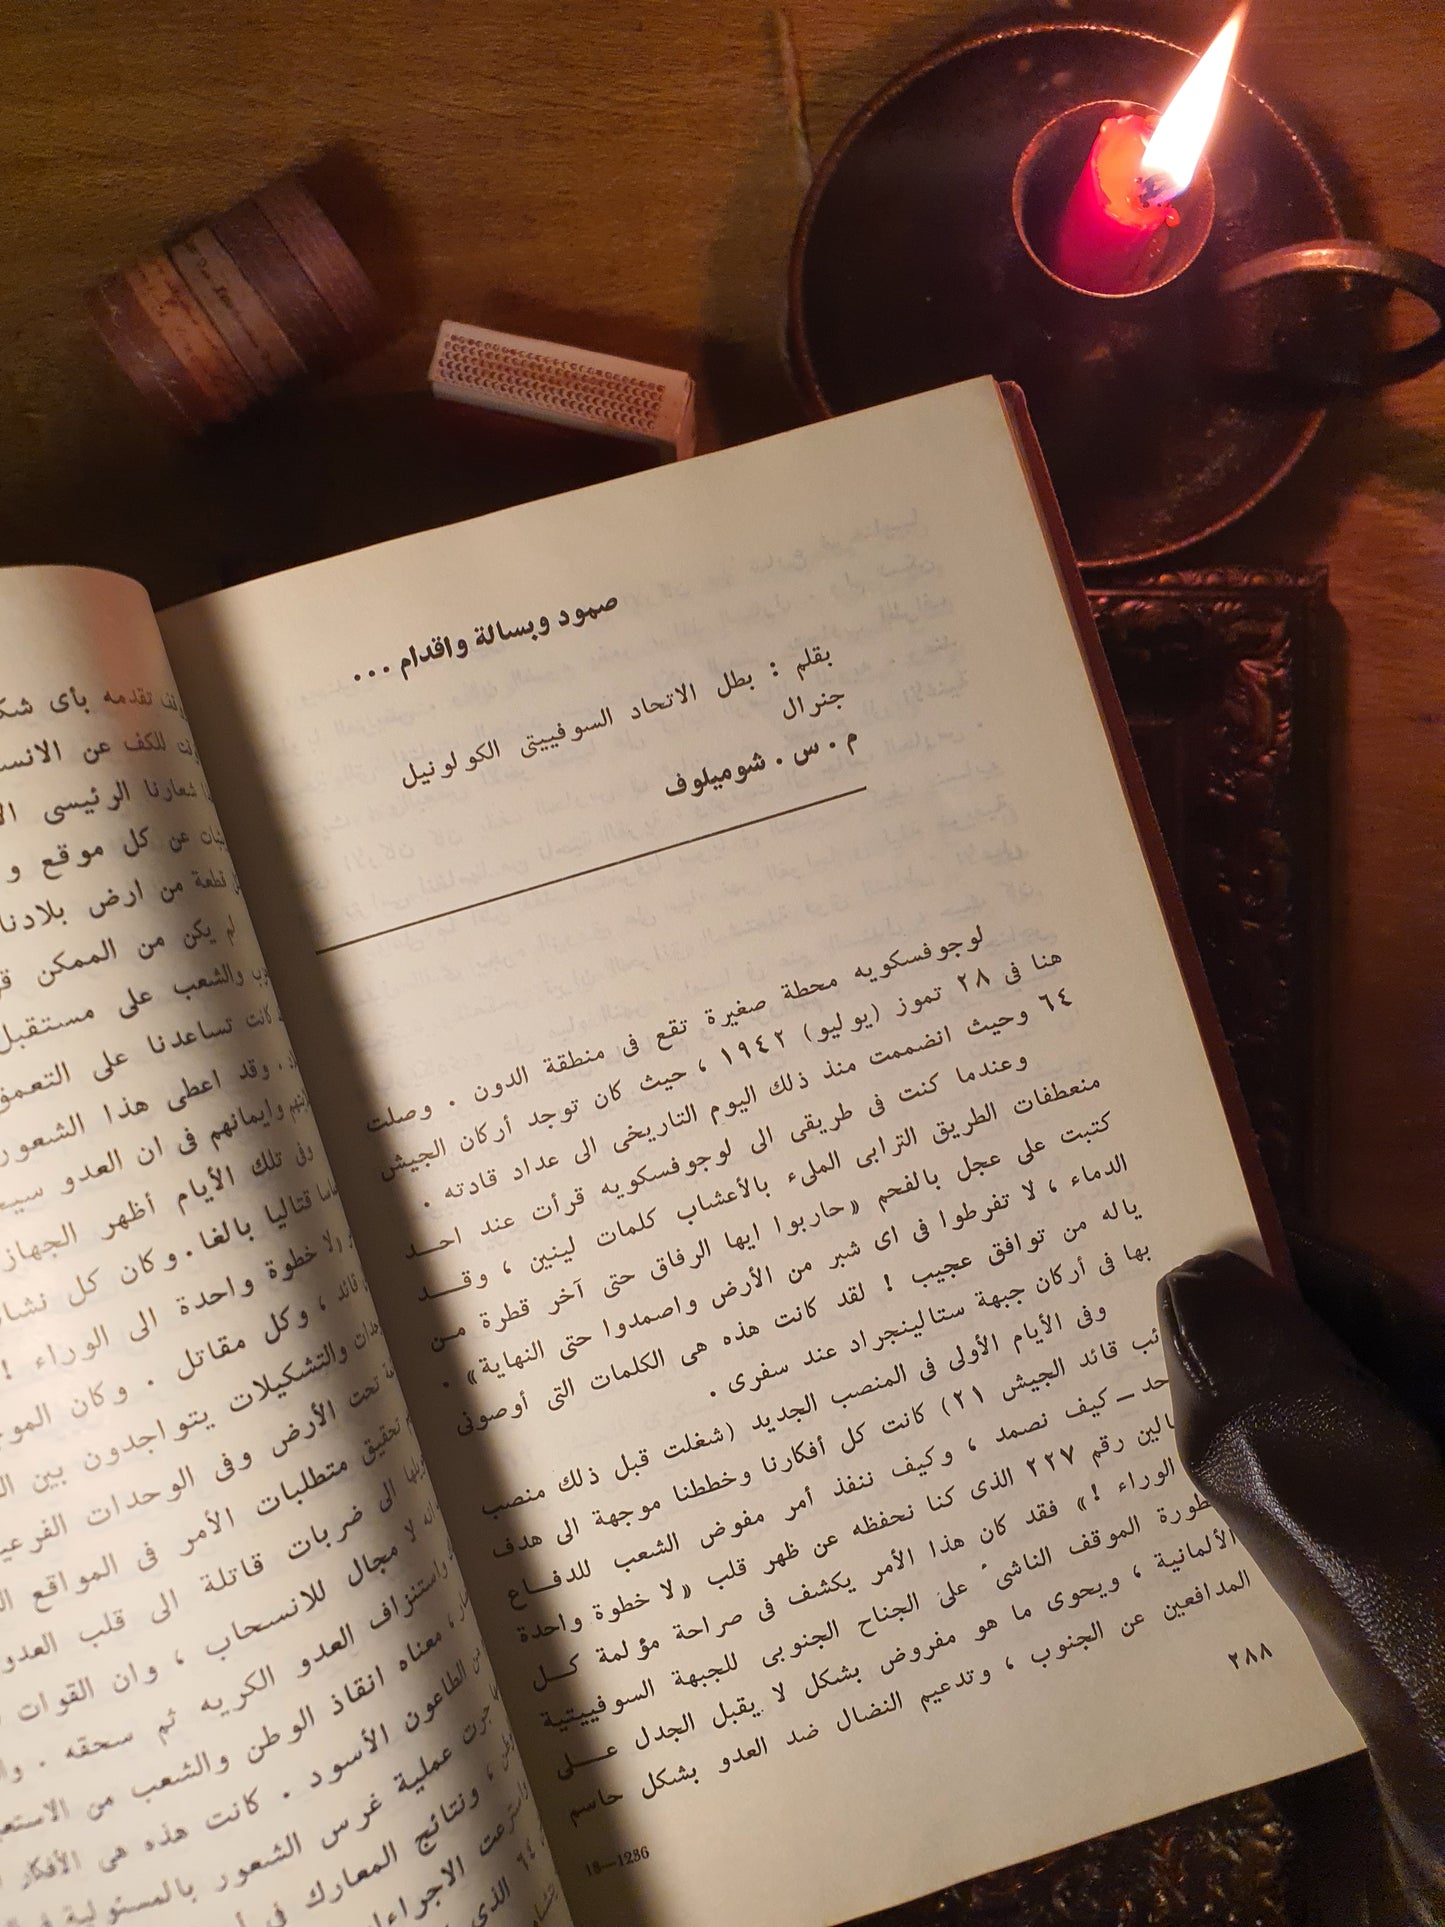 صمود وبسالة واقدام ...
بقلم : بطل الاتحاد السوفييتى الكولونيل
جنرال
م . س . شوميلوف
لوجوفسكويه محطة صغيرة تقع فى منطقة الدون . وصلت
هنا فى ٢٨ تموز (يوليو) ١٩٤٢ ، حيث كان توجد أركان الجيش
٦٤ وحيث انضممت منذ ذلك اليوم التاريخى الى عداد قادته .
وعندما كنت فى طريقى الى لوجوفسكويه قرأت عند احـــد
منعطفات الطريق الترابى الملىء بالأعشاب كلمات لينين ، وقـــد
كتبت على عجل بالفحم «حاربوا ايها الرفاق حتى آخر قطرة مـن
الدماء ، لا تفرطوا فى اى شبر من الأرض واصمدوا حتى النهاية» .
ياله من توافق عجيب ! لقد كانت هذه هى الكلمات التى أوصونى
بها فى أركان جبهة ستالينجراد عند سفرى .
وفى الأيام الأولى فى المنصب الجديد (شغلت قبل ذلك منصب
ئب قائد الجيش ٢١) كانت كل أفكارنا وخططنا موجهة الى هدف
حد — كيف نصمد ، وكيف ننفذ أمر مفوض الشعب للدفـــاع
الين رقم ٢٢٧ الذى كنا نحفظه عن ظهر قلب «لا خطوة واحدة
الوراء !» فقد كان هذا الأمر يكشف فى صراحة مؤلمة كـــل
طورة الموقف الناشىء على الجناح الجنوبى للجبهة السوفييتية
الألمانية ، ويحوى ما هو مفروض بشكل لا يقبل الجدل عـــلى
المدافعين عن الجنوب ، وتدعيم النضال ضد العدو بشكل حاسم
٢٨٨
18—1286
تقدمه بأى شك
للكف عن الانس
شعارنا الرئيسى الا
عن كل موقع و
قطعة من ارض بلادنا
لم يكن من الممكن
والشعب على مستقبل
كانت تساعدنا على التعمق
. وقد اعطى هذا الشعور
وايمانهم فى ان العدو سيـ
وفى تلك الأيام أظهر الجهاز
قتاليا بالغا . وكان كل نشا
ولا خطوة واحدة الى الوراء !
قائد ، وكل مقاتل . وكان الموجـ
والتشكيلات يتواجدون بين الـ
تحت الأرض وفى الوحدات الفرعيـ
تحقيق متطلبات الأمر فى المواقع الـ
الى ضربات قاتلة الى قلب العدو
انه لا مجال للانسحاب ، وان القوات
واستنزاف العدو الكريه ثم سحقه .
، معناه انقاذ الوطن والشعب من الاستعبـ
من الطاعون الأسود . كانت هذه هى الأفكار
جرت عملية غرس الشعور بالمسئولية
، ونتائج المعارك فى
الاجراءا
٦٤ الذى